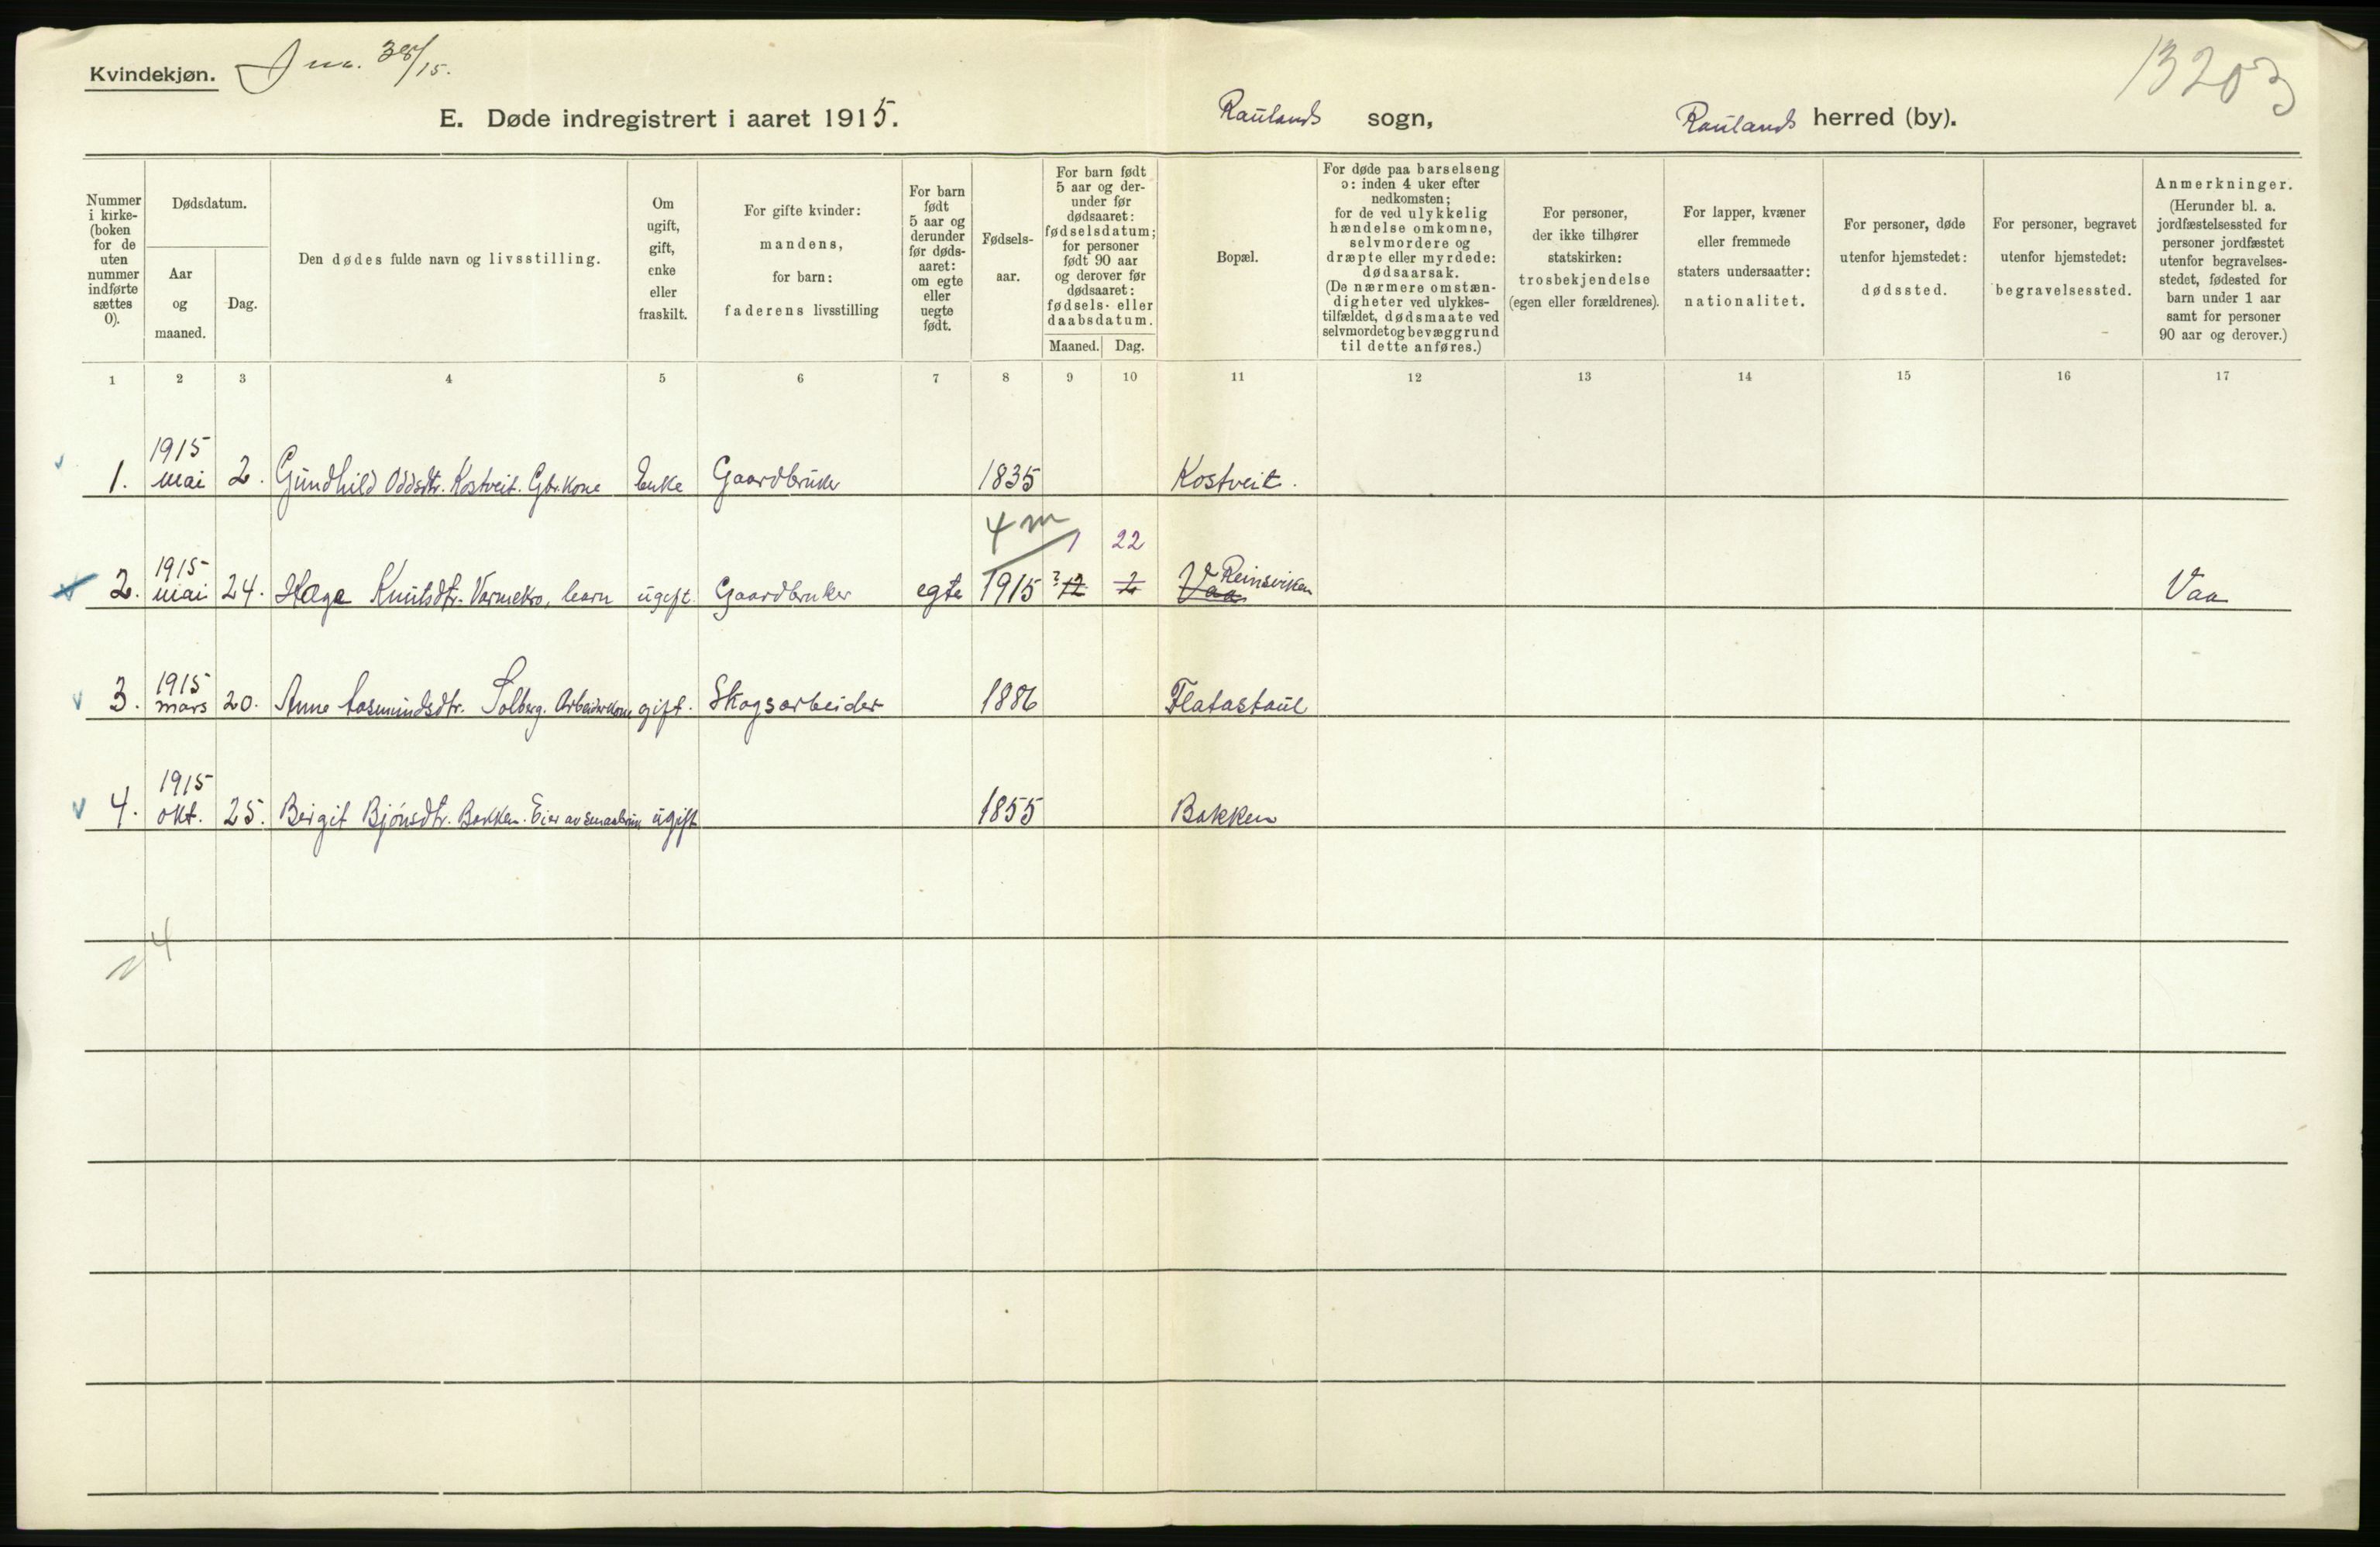 Kvindekjøn.
J no. 38/15.
13203
E. Døde indregistrert i aaret 1915.
Raulands sogn,
Raulands herred (by).
Nummer i kirke-(boken for de uten nummer indførte sættes 0).
Dødsdatum.
Aar og maaned.
Dag.
Den dødes fulde navn og livsstilling.
Om ugift, gift, enke eller fraskilt.
For gifte kvinder: mandens, for barn: faderens livsstilling
For barn født 5 aar og derunder før døds-aaret: om egte eller uegte født.
Fødsels-aar.
For barn født 5 aar og der-under før dødsaaret: fødselsdatum; for personer født 90 aar og derover før dødsaaret: fødsels- eller daabsdatum.
Maaned.
Dag.
Bopæl.
For døde paa barselseng ɔ: inden 4 uker efter nedkomsten; for de ved ulykkelig hændelse omkomne, selvmordere og dræpte eller myrdede: dødsaarsak. (De nærmere omstæn-digheter ved ulykkes-tilfældet, dødsmaate ved selvmordet og bevæggrund til dette anføres.)
For personer, der ikke tilhører statskirken: trosbekjendelse (egen eller forældrenes).
For lapper, kvæner eller fremmede staters undersaatter: nationalitet.
For personer, døde utenfor hjemstedet: dødssted.
For personer, begravet utenfor hjemstedet: begravelsessted.
Anmerkninger. (Herunder bl. a. jordfæstelsessted for personer jordfæstet utenfor begravelses-stedet, fødested for barn under 1 aar samt for personer 90 aar og derover.)
1 2 3 4 5 6 7 8 9 10 11 12 13 14 15 16 17
1. 1915 mai 2. Gundhild Oddsdtr. Kostveit. Gbr.kone Enke Gaardbruker 1835 Kostveit.
4 m 1 22
2. 1915 mai 24. Hæge Knutsdtr. Varmekro, barn ugift. Gaardbruker egte 1915 ? 12 2 Vaa Reinsviken Vaa
3. 1915 mars 20. Anne Aasmundsdtr. Solberg. Arbeiderkone gift. Skogsarbeider 1886 Flatastaul
4. 1915 okt. 25. Beigit Bjönsdtr. Bakken. Eier av smaabruk ugift 1855 Bakken
4